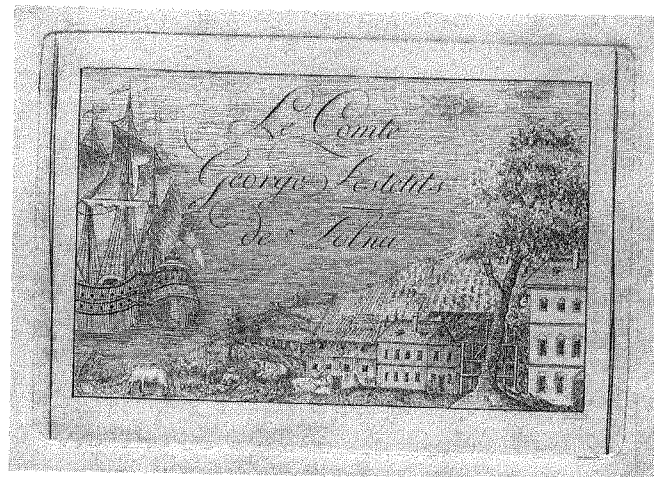 Le Comte
George Festetits
de Tolna